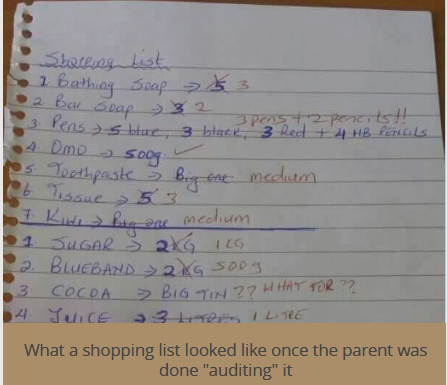 Shopping List
1. Bathing Soap → 5 3
2. Bar Soap → 3 2
3 pens + 2 pencils!!
3. Pens → 5 blue, 3 black, 3 Red + 4 HB PENCILS
4. OMO → 500g ✓
5. Toothpaste → Big one medium
6. Tissue → 5 3
7. Kiwi → Big one medium
1. SUGAR → 2KG 1KG
2. BLUEBAND → 2KG 500g
3 COCOA → BIG TIN ?? WHAT FOR ??
4. JUICE → 3 LITRES 1 LITRE
What a shopping list looked like once the parent was
done "auditing" it